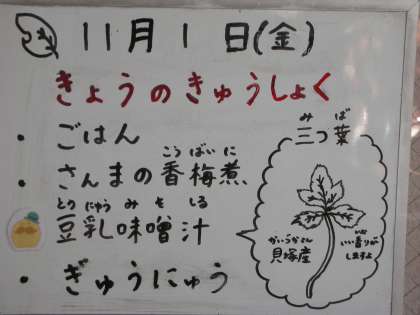 11月1日(金)
きょうのきゅうしょく
・ごはん
・さんまの香梅煮
こうばいに
とうにゅう みそ しる
豆乳味噌汁
・ぎゅうにゅう
みつば
三つ葉
かいづかさん
貝塚産
いい香りが
しますよ